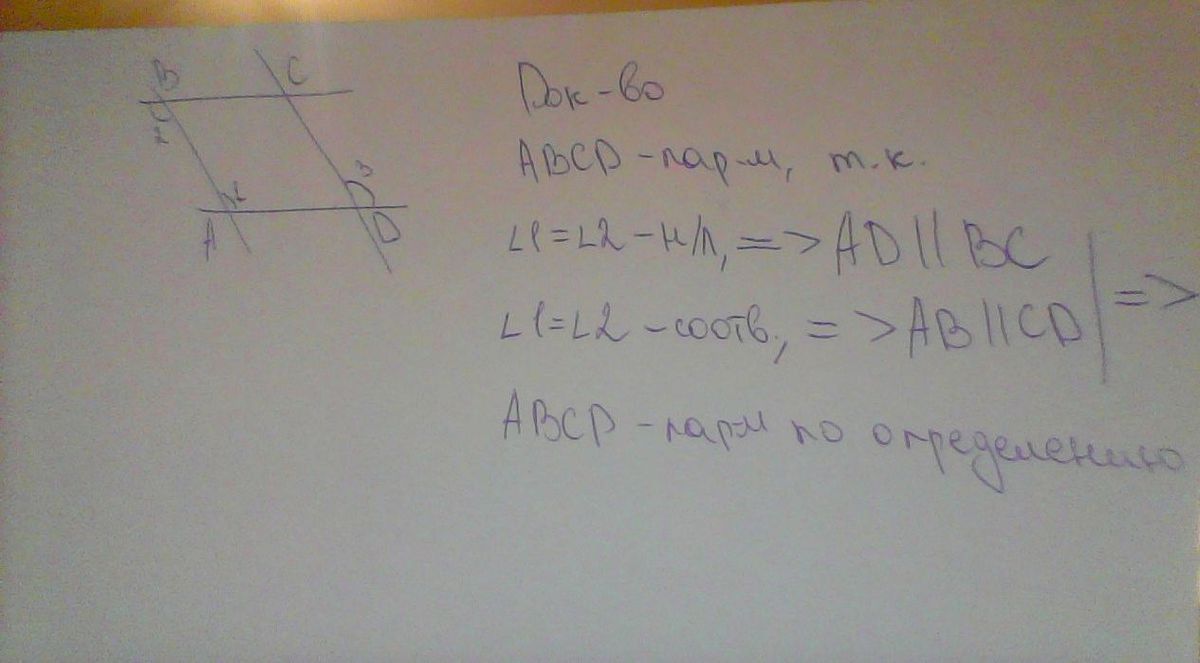 B C
3
A D
Док-во
ABCD - пар-м, т.к.
∠1=∠2 - н/л, => AD || BC
∠1=∠2 - соотв., => AB || CD | =>
ABCD - пар-м по определению